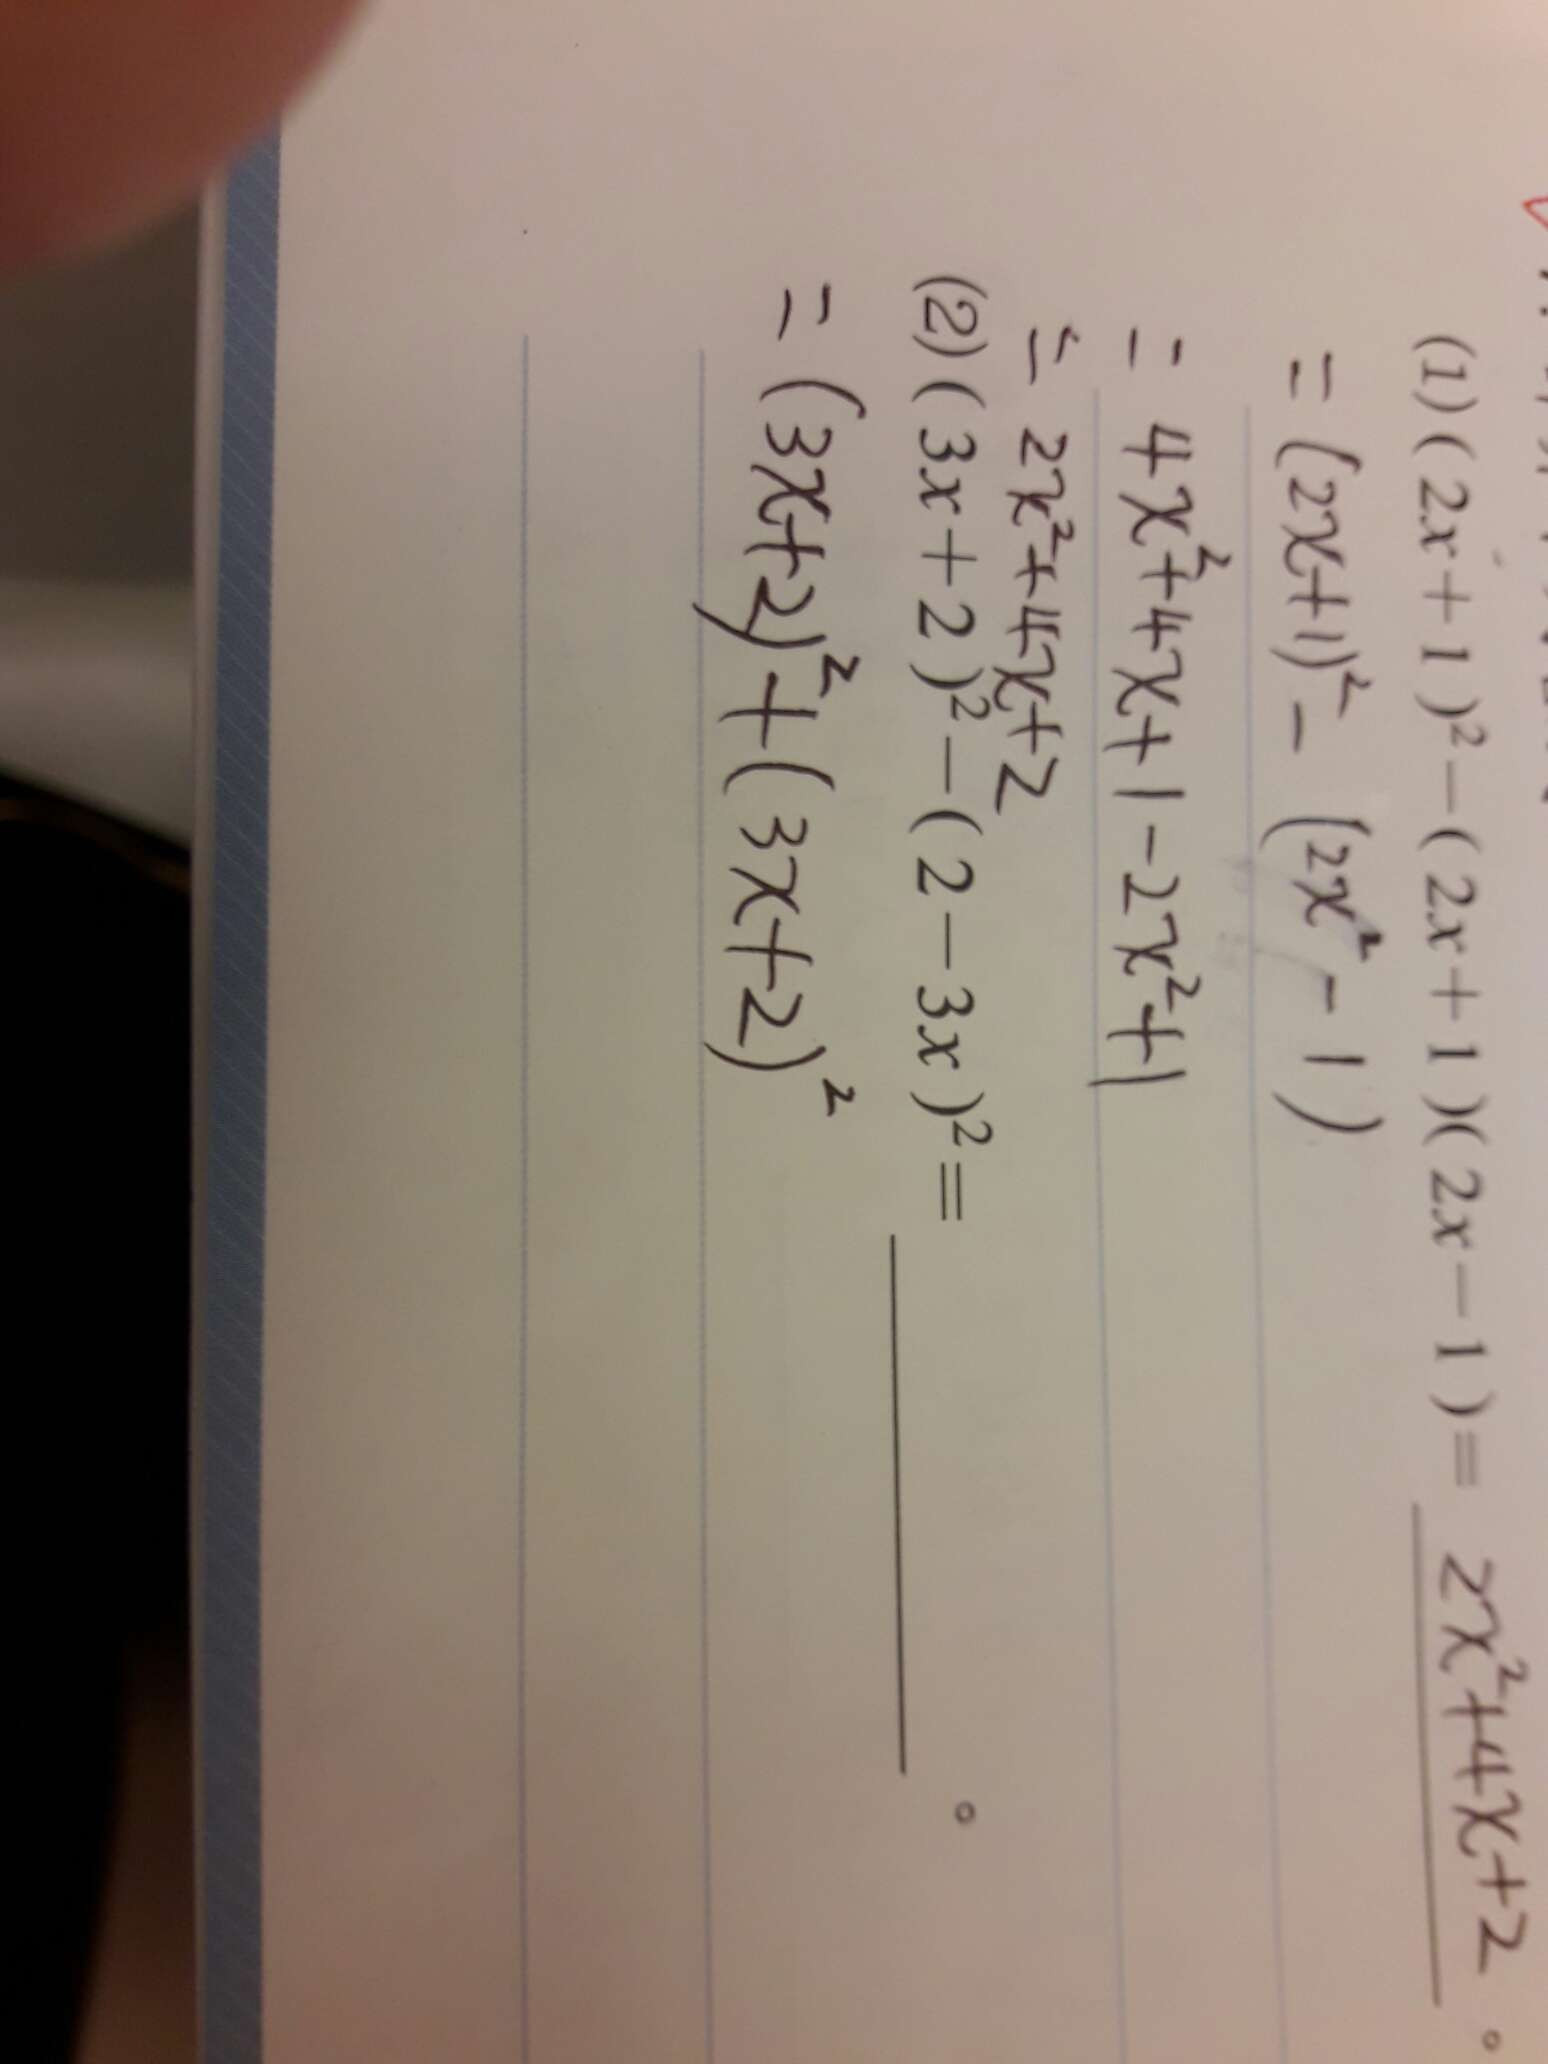 (1)(2x+1)²-(2x+1)(2x-1)= 2x²+4x+2 。
=(2x+1)²-(2x²-1)
= 4x²+4x+1-2x²+1
= 2x²+4x+2
(2)(3x+2)²-(2-3x)²=________。
=(3x+2)²+(3x+2)²